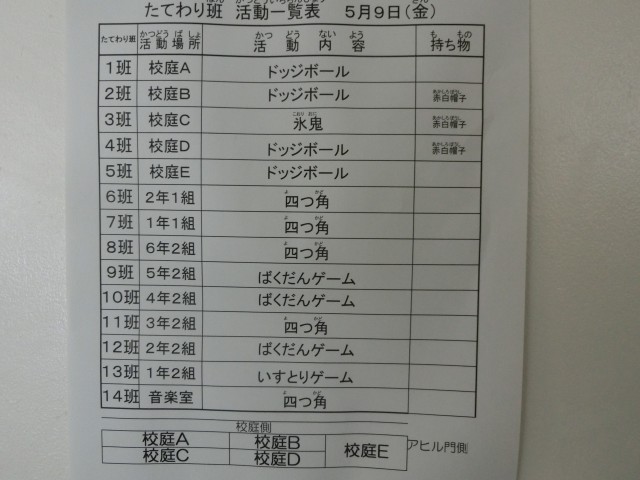 たてわり班 活動一覧表 5月9日(金)
たてわり班 活動場所 活動内容 持ち物
1班 校庭A ドッジボール
2班 校庭B ドッジボール 赤白帽子
3班 校庭C 氷鬼 赤白帽子
4班 校庭D ドッジボール 赤白帽子
5班 校庭E ドッジボール
6班 2年1組 四つ角
7班 1年1組 四つ角
8班 6年2組 四つ角
9班 5年2組 ばくだんゲーム
10班 4年2組 ばくだんゲーム
11班 3年2組 四つ角
12班 2年2組 ばくだんゲーム
13班 1年2組 いすとりゲーム
14班 音楽室 四つ角
校庭側
校庭A 校庭B 校庭E アヒル門側
校庭C 校庭D